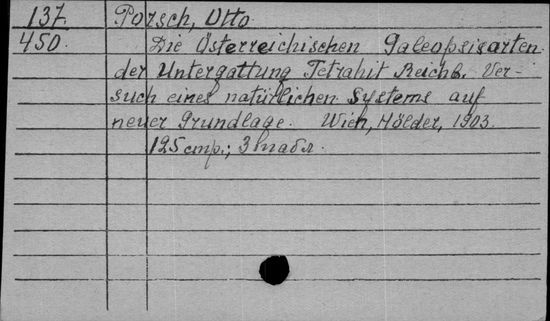 137. Porsch, Otto
450. Die Österreichischen Galeopsisarten
der Untergattung Tetrahit Reichb. Ver-
such eines natürlichen Systems auf
neuer Grundlage. Wien, Hölder, 1903.
125 стр.; 3 табл.